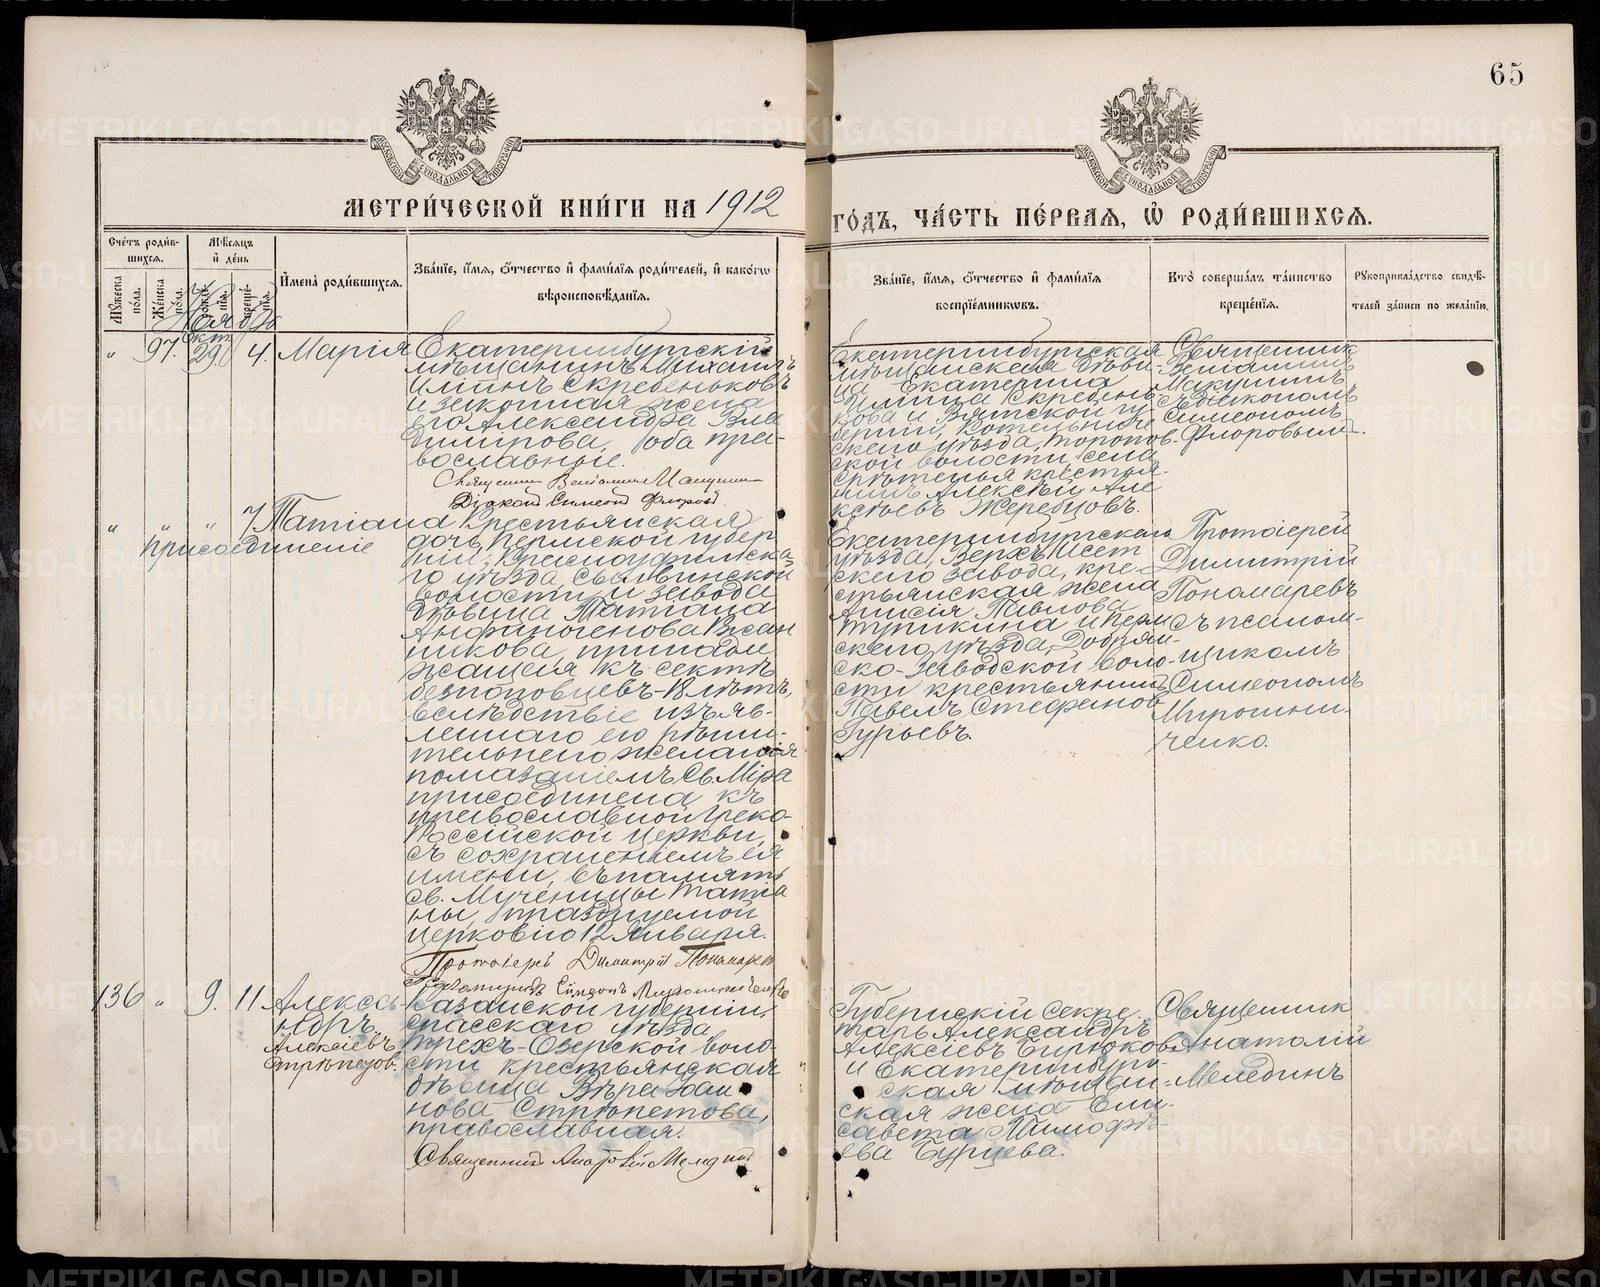 65
МОСКОВСКОЙ СѴНОДАЛЬНОЙ ТИПОГРАФІИ
МОСКОВСКОЙ СѴНОДАЛЬНОЙ ТИПОГРАФІИ
МЕТРИ́ЧЕСКОЙ КНИ́ГИ НА 1912
ГО́ДЪ, ЧА́СТЬ ПЕ́РВАЯ, Ѡ҆ РОДИ́ВШИХСЯ.
Сче́тъ роди́в-
шихся.
Мꙋ́жеска
по́ла.
Же́нска
по́ла.
Мѣ́сяцъ
и҆ де́нь
рожде́-
нія.
креще́-
нія.
И҆мена̀ роди́вшихся.
Зва́ніе, и҆́мя, ѻ҆́тчество и҆ фами́лія роди́телей, и҆ како́гѡ
вѣроисповѣ́данія.
Зва́ніе, и҆́мя, ѻ҆́тчество и҆ фами́лія
воспріе́мникѡвъ.
Кто̀ соверша́лъ та́инство
креще́нія.
Рꙋкоприкла́дство свидѣ́-
телей за́писи по жела́нію.
Ноябрь
" 97. Окт. 29. 4. Марія
Екатеринбургскій
мѣщанинъ Михаилъ
Илiинъ Скребеньковъ
и законная жена
его Александра Вла
димірова, оба пра-
вославные.
Священник Веніамин Макушин
Діакон Симеон Флоров
Екатеринбургская
мѣщанская дѣви-
ца Екатерина
Ильина Скребень-
кова и Вятской гу-
берніи, Котельниче
скаго уѣзда, Торопов-
ской волости села
Срѣтенья крестья-
нинъ Алексѣй Але
ксѣевъ Жеребцовъ.
Священник
Веніаминъ
Макушинъ
съ діакономъ
Симеономъ
Флоровымъ.
" " " 7 Татіана
присоединеніе
Крестьянская
дочь, Пермской губер
ніи, Красноуфимска-
го уѣзда, Сылвинской
волости и завода
дѣвица Татіана
Анфиногенова Вжан
никова, принадле
жащая къ сектѣ
безпоповцевъ - 18 лѣтъ,
вслѣдствіе изъяв-
леннаго ею рѣши-
тельнаго желанія
помазаніемъ Св. Мѵра
присоединена къ
православной Греко-
Россійской церкви,
съ сохраненіемъ ея
имени, въ память
св. Мученицы Татіа
ны, празднуемой
церковію 12 Января.
Протоіерей Димитрій Пономарев
Псаломщикъ Симеонъ Мирошниченко
Екатеринбургскаго
уѣзда, Верхъ-Исет
скаго завода, кре-
стьянская жена
Анисія Павлова
Тупикина и Перм
скаго уѣзда, Добрян-
ско-заводской воло-
сти крестьянинъ
Павелъ Стефанов
Гурьевъ.
Протоіерей
Димитрій
Пономаревъ
съ псалом-
щикомъ
Симеономъ
Мирошни-
ченко.
136 " 9. 11 Алекса-
ндръ.
Алексіевъ
Стрѣпетов.
Казанской губерніи,
Спасскаго уѣзда,
Трехъ-Озерской воло-
сти крестьянская
дѣвица Вѣра Хан
нова Стрѣпетова,
православная.
Священник Анатолій Меледин
Губернскій секре
тарь Александръ
Алексіевъ Бирюков
и Екатеринбург-
ская мѣщан-
ская жена Ели-
савета Тимофѣ-
ева Бурцева.
Священник
Анатолій
Мелединъ